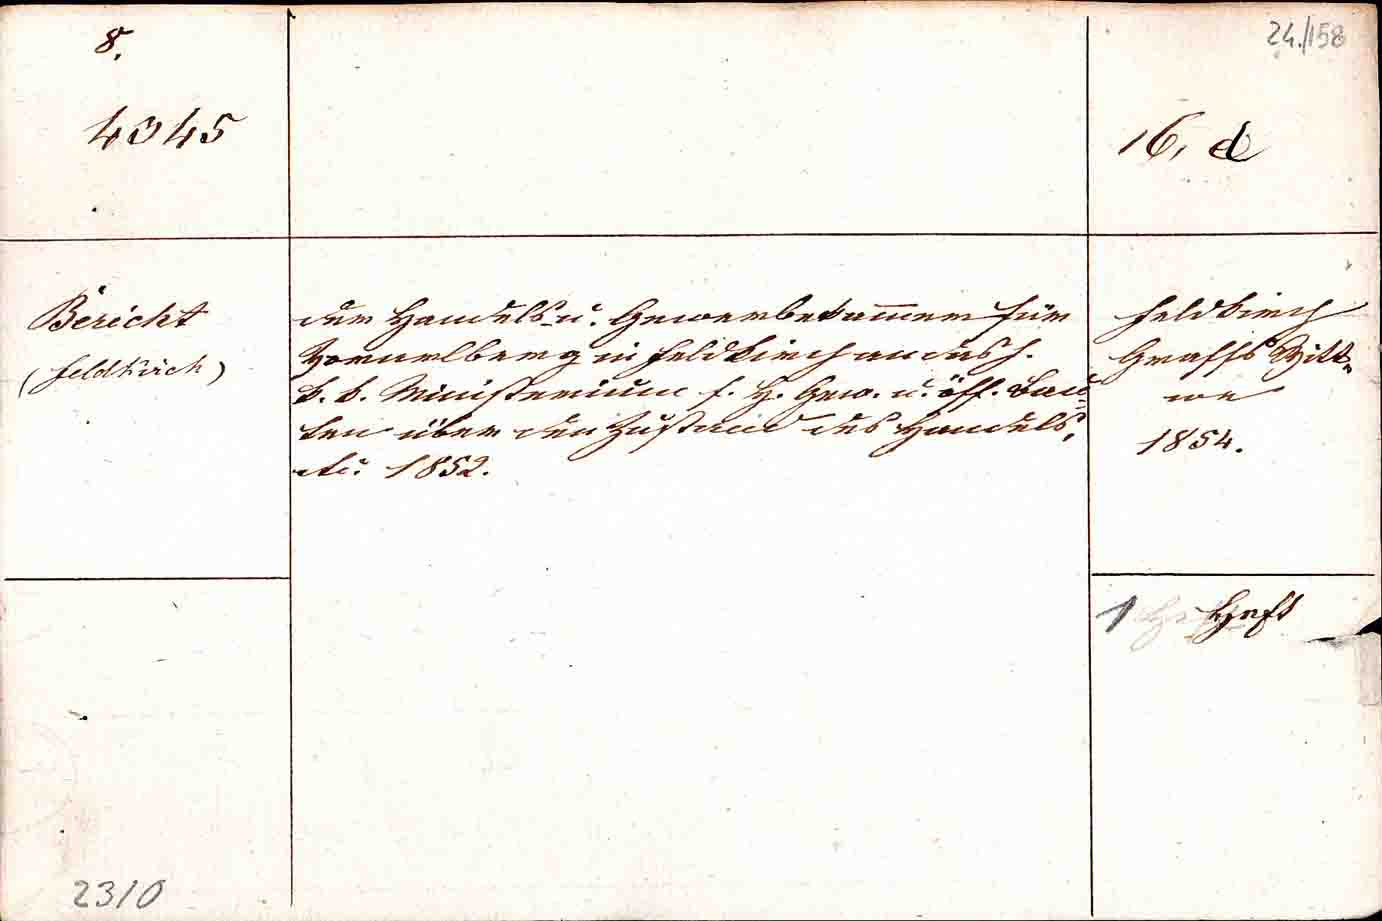 8.
4045
24./158
16, d
Bericht
(Feldkirch)
der Handels- u. Gewerbekammer für
Vorarlberg in Feldkirch an das h.
k. k. Ministerium f. H. Gew. u. öff. Bau-
ten über den Zustand des Handels,
etc. 1852.
Feldkirch
Graffs Witt-
we
1854.
1 Heft
2310